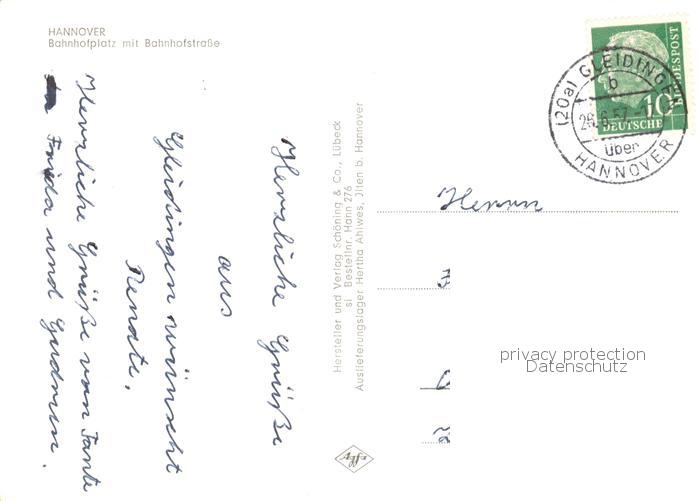 HANNOVER
Bahnhofplatz mit Bahnhofstraße
Herzliche Grüße
aus
Gleidingen wünscht
Renate.
Herzliche Grüße von Tante
Frida und Gudrun.
Hersteller und Verlag Schöning & Co., Lübeck
si Bestellnr. Hann 276
Auslieferungslager Hertha Ahlwes, Jlten b. Hannover
(20a) GLEIDINGEN
b
26.6.57
über
HANNOVER
10
DEUTSCHE
BUNDESPOST
Herrn
privacy protection
Datenschutz